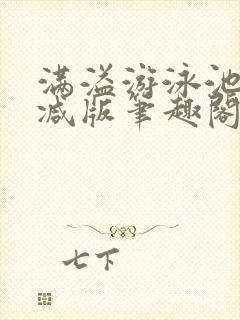 满溢游泳池
减版笔趣阁
七下